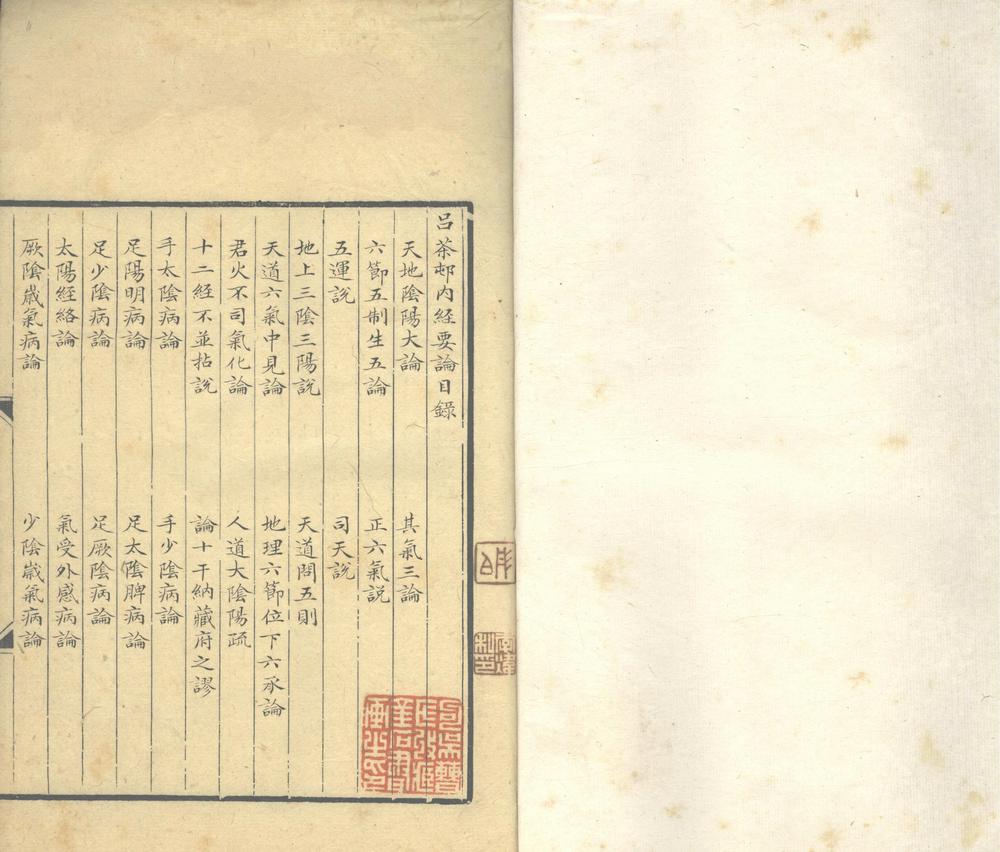 呂茶邨內經要論目錄
天地陰陽大論 其氣三論
六節五制生五論 正六氣説
五運説 司天説
地上三陰三陽説 天道問五則
天道六氣中見論 地理六節位下六承論
君火不司氣化論 人道大陰陽疏
十二經不並拈説 論十干納藏府之謬
手太陰病論 手少陰病論
足陽明病論 足太陰脾病論
足少陰病論 足厥陰病論
太陽經絡論 氣受外感病論
厥陰歲氣病論 少陰歲氣病論